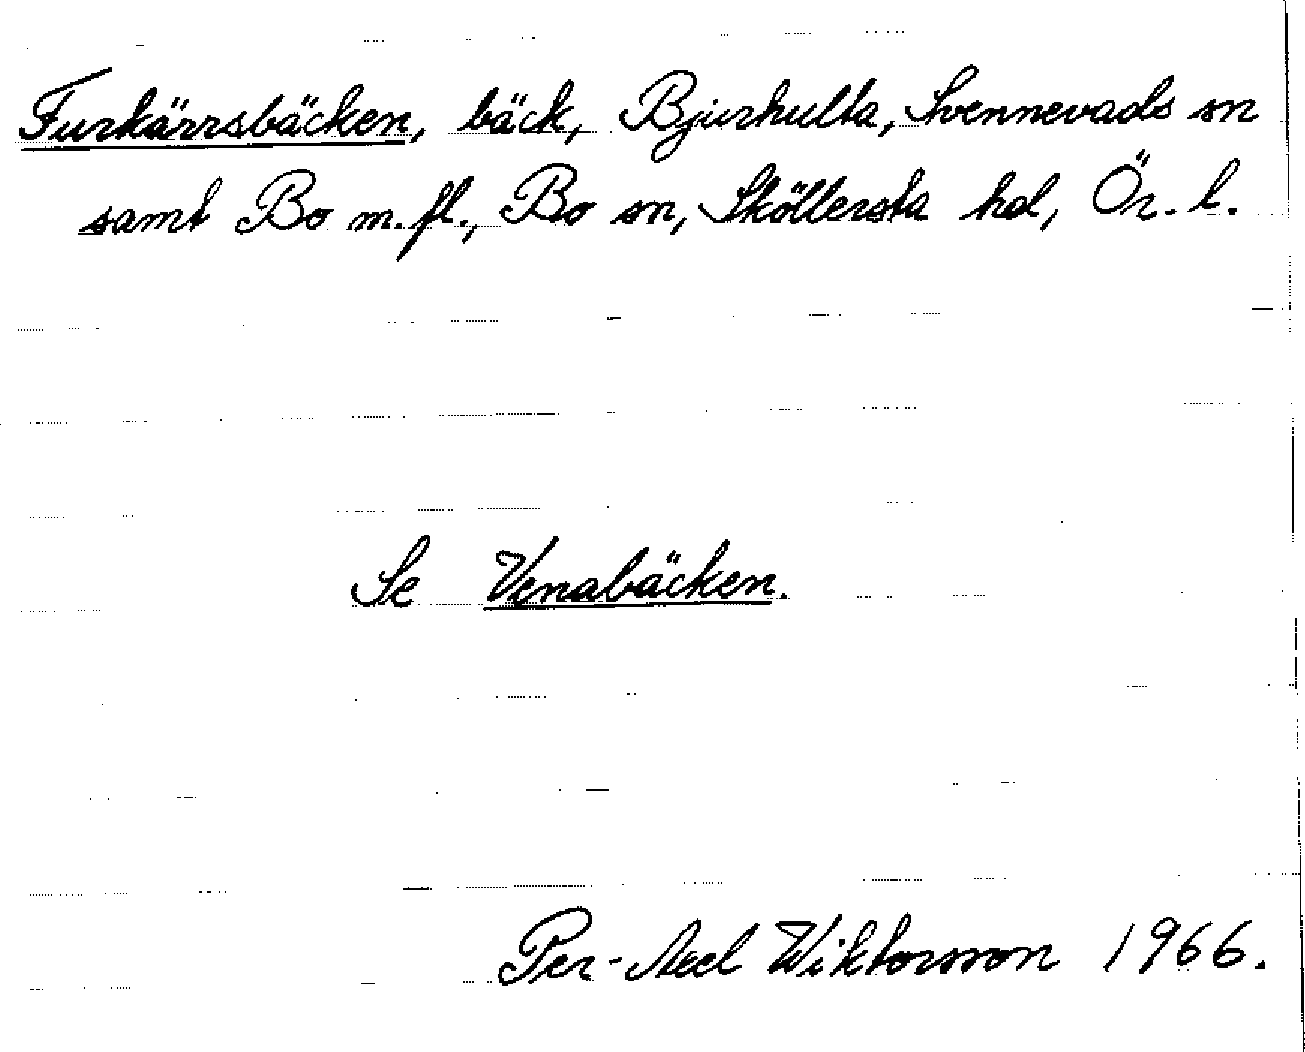 Furkärrsbäcken, bäck, Bjurhulta, Svennevads sn
samt Bo m.fl., Bo sn, Sköllersta hd, Ör. l.
Se Venabäcken.
Per-Axel Wiktorsson 1966.